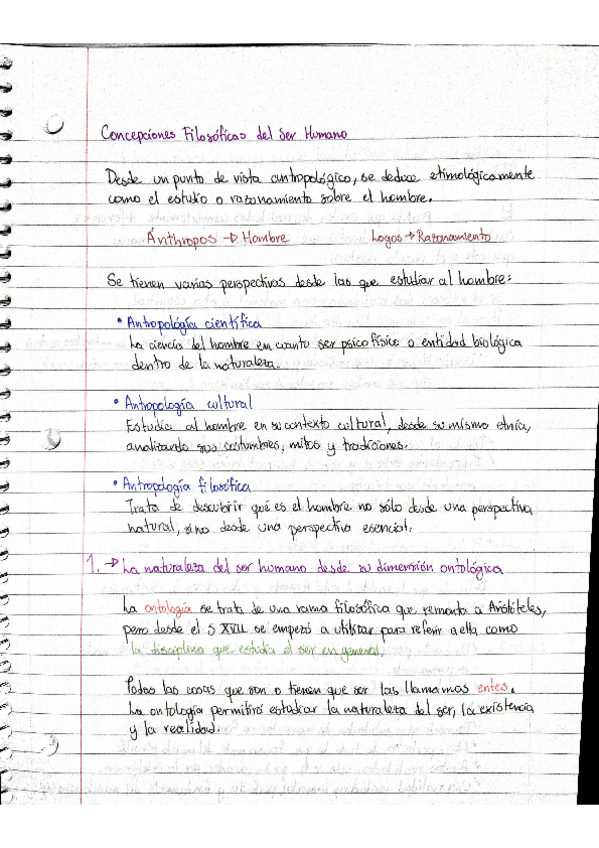 Concepciones Filosóficas del Ser Humano
Desde un punto de vista antropológico, se deduce etimológicamente
como el estudio o razonamiento sobre el hombre.
Ánthropos → Hombre Logos → Razonamiento
Se tienen varias perspectivas desde las que estudiar al hombre:
• Antropología científica
La ciencia del hombre en cuanto ser psicofísico o entidad biológica
dentro de la naturaleza.
• Antropología cultural
Estudia al hombre en su contexto cultural, desde su misma etnia,
analizando sus costumbres, mitos y tradiciones.
• Antropología filosófica
Trata de descubrir qué es el hombre no sólo desde una perspectiva
natural, sino desde una perspectiva esencial.
1. → La naturaleza del ser humano desde su dimensión ontológica
La ontología se trata de una rama filosófica que remonta a Aristóteles,
pero desde el S XVII se empezó a utilizar para referir a ella como
la disciplina que estudia el ser en general.
Todas las cosas que son o tienen que ser las llamamos entes.
La ontología permitirá estudiar la naturaleza del ser, la existencia
y la realidad.